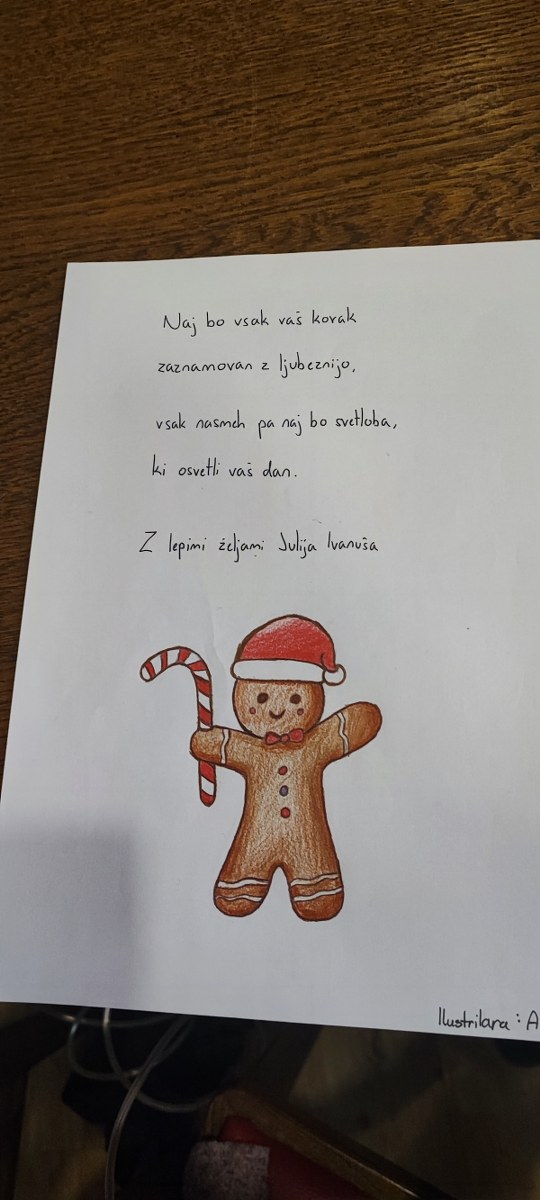 Naj bo vsak vaš korak
zaznamovan z ljubeznijo,
vsak nasmeh pa naj bo svetloba,
ki osvetli vaš dan.
Z lepimi željami Julija Ivanuša
Ilustrilara : A